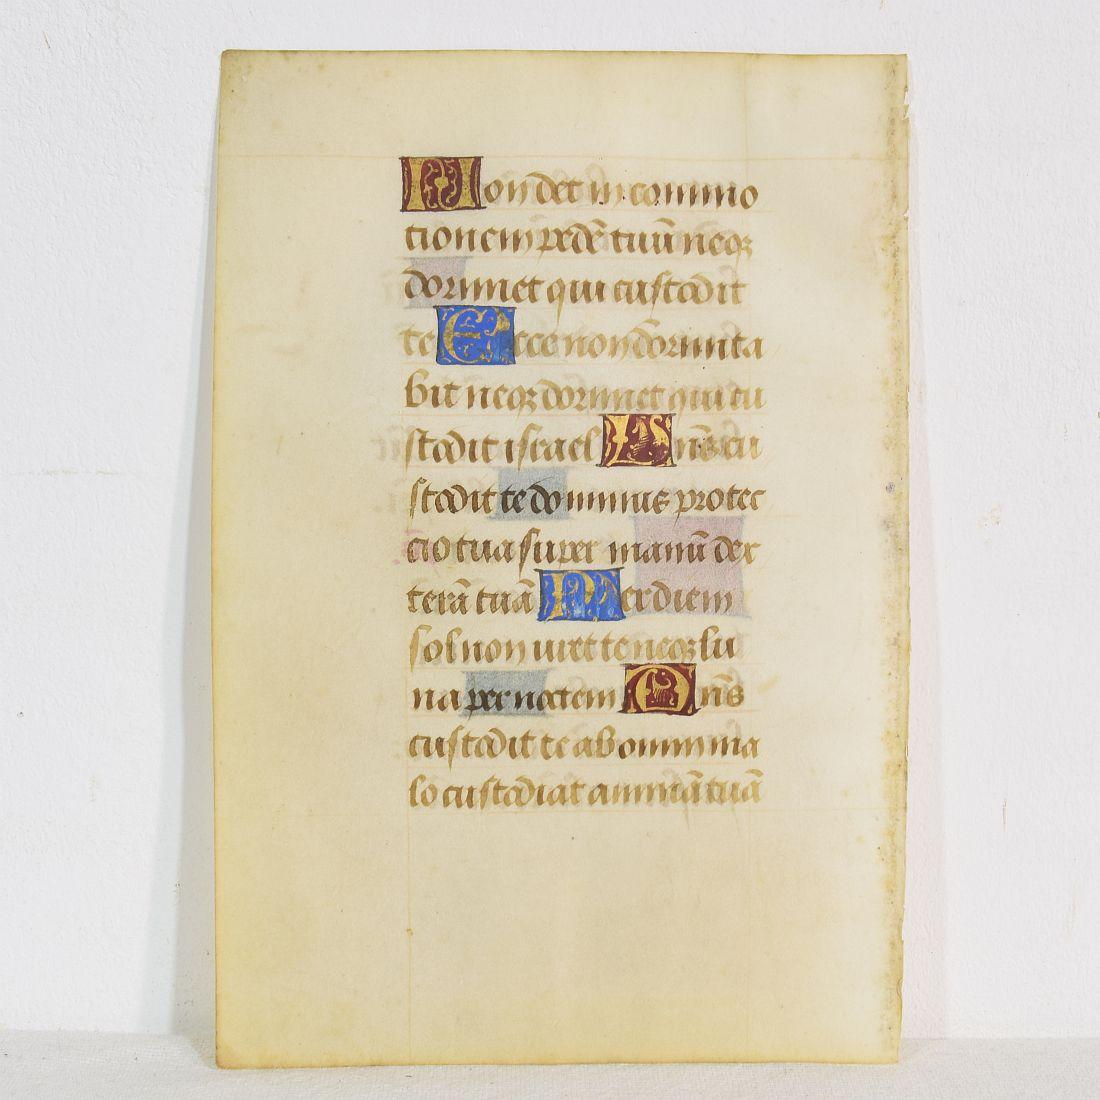 Non det in commo
tionem pedē tuū neqꝫ
dormiet qui custodit
te Ecce non dormita
bit neqꝫ dormiet qui cu
stodit israel Dn̄s cu
stodit te dominus protec
cio tua super manū dex
terā tuā Per diem
sol non uret te neqꝫ lu
na per noctem Dn̄s
custodit te ab omni ma
lo custodiat animā tuā